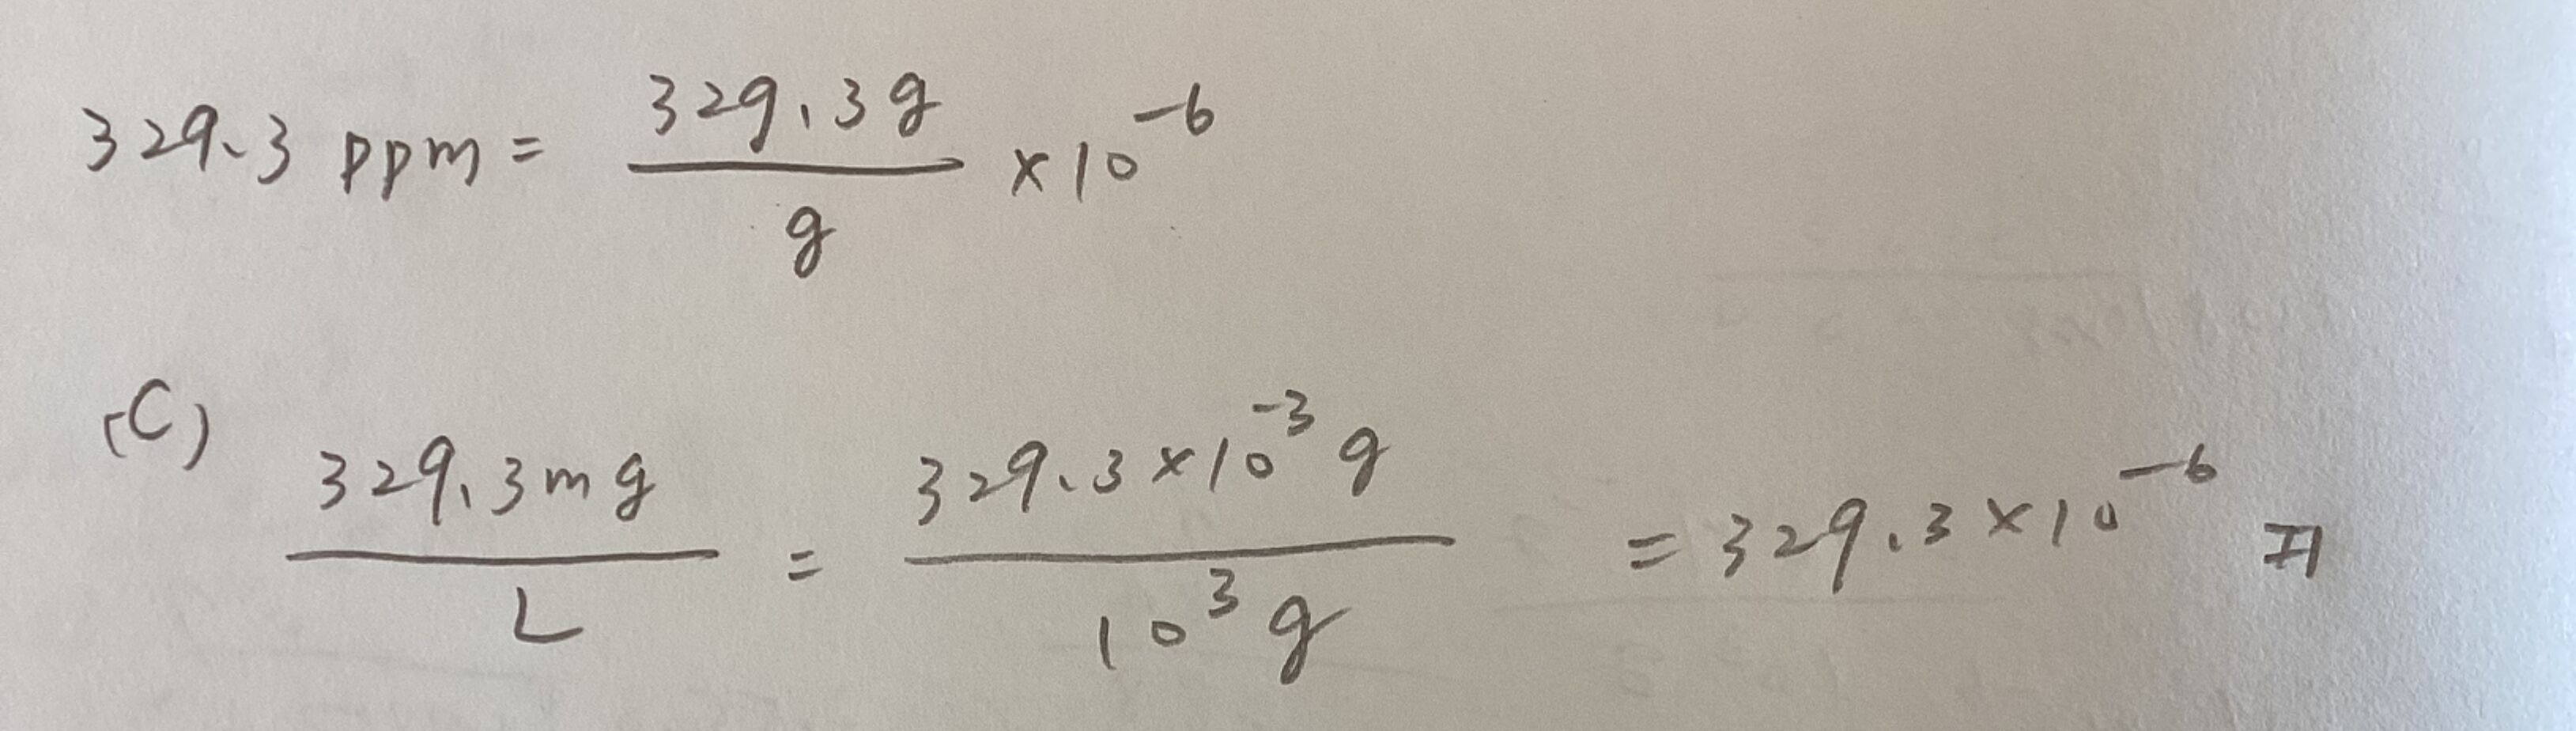 329.3 ppm = 329.3g / g ×10^-6
(C) 329.3mg / L = 329.3×10^-3 g / 10^3 g = 329.3×10^-6